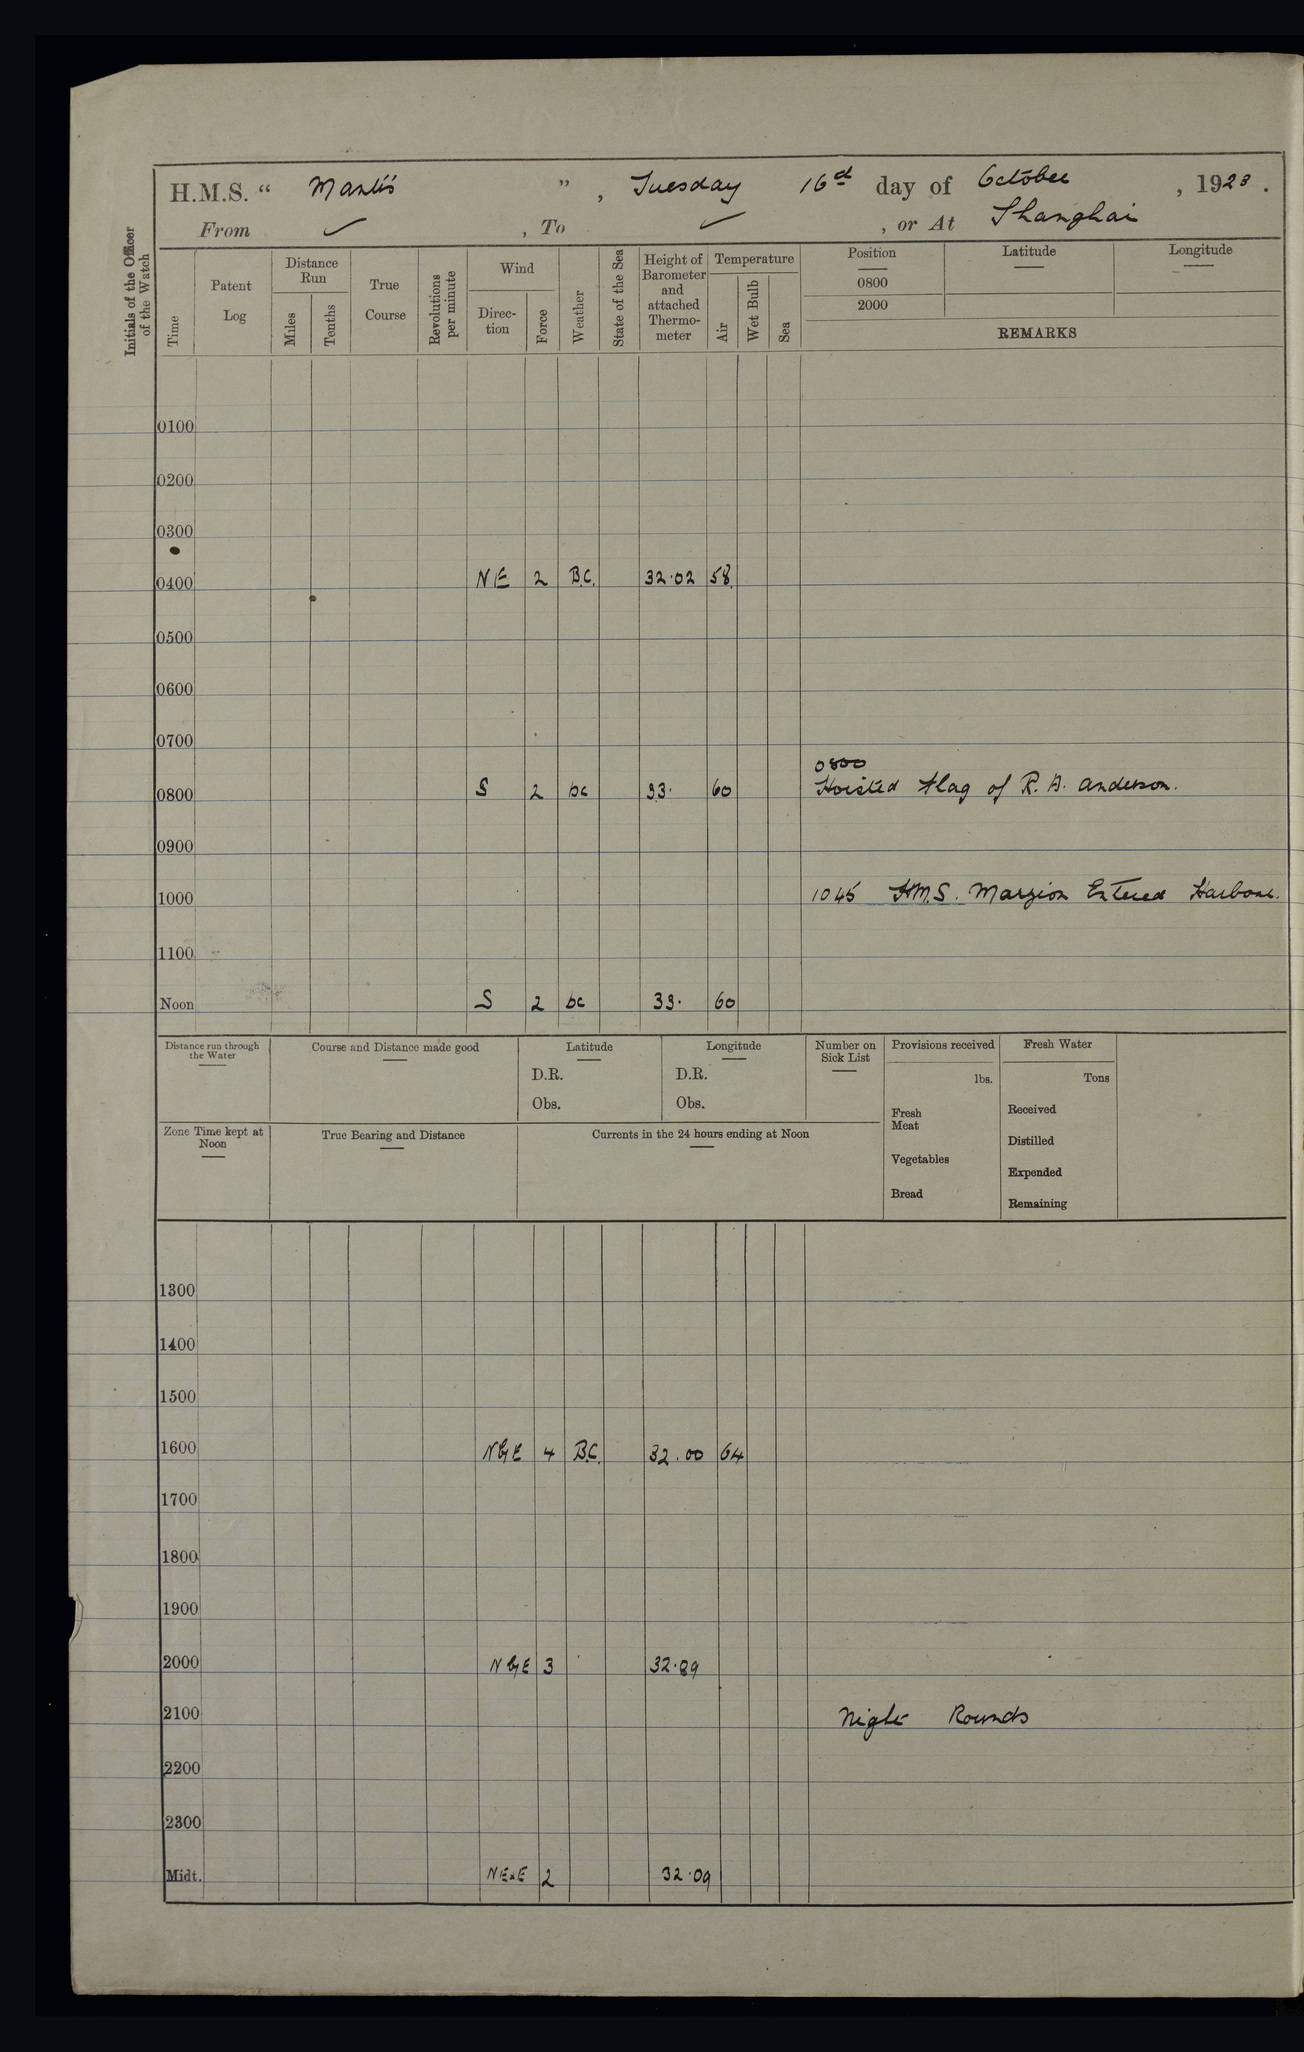 H.M.S. “ Mantis ” , Tuesday 16th day of October , 1923 .
From ✓ , To ✓ , or At Shanghai
Initials of the Officer of the Watch
Time
Patent Log
Distance Run
Miles
Tenths
True Course
Revolutions per minute
Wind
Direc-tion
Force
Weather
State of the Sea
Height of Barometer and attached Thermo-meter
Temperature
Air
Wet Bulb
Sea
Position Latitude Longitude
0800
2000
REMARKS
0100
0200
0300
0400 NE 2 B.C. 32.02 58
0500
0600
0700
0800
0800 S 2 bc 33. 60 Hoisted flag of R. A. Anderson.
0900
1000 1045 H.M.S. Marzion Entered Harbour.
1100
Noon S 2 bc 33. 60
Distance run through the Water
Course and Distance made good
Latitude
D.R.
Obs.
Longitude
D.R.
Obs.
Number on Sick List
Provisions received
lbs.
Fresh Meat
Vegetables
Bread
Fresh Water
Tons
Received
Distilled
Expended
Remaining
Zone Time kept at Noon
True Bearing and Distance
Currents in the 24 hours ending at Noon
1300
1400
1500
1600 NbyE 4 B.C. 32.00 64
1700
1800
1900
2000 NbyE 3 32.89
2100 Night Rounds
2200
2300
Midt. NExE 2 32.09